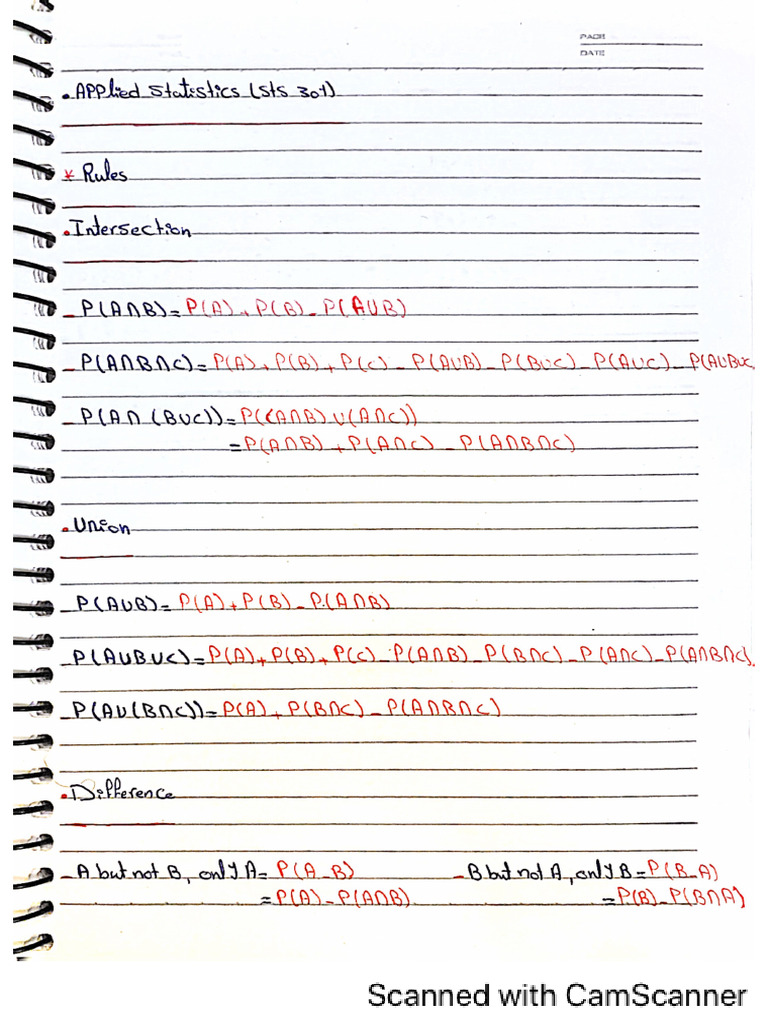 PAGE
DATE
• Applied Statistics (STS 301)
* Rules
• Intersection
- P(A∩B) = P(A) + P(B) - P(A∪B)
- P(A∩B∩C) = P(A) + P(B) + P(C) - P(A∪B) - P(B∪C) - P(A∪C) - P(A∪B∪C
- P(A∩(B∪C)) = P((A∩B)∪(A∩C))
= P(A∩B) + P(A∩C) - P(A∩B∩C)
• Union
- P(A∪B) = P(A) + P(B) - P(A∩B)
- P(A∪B∪C) = P(A) + P(B) + P(C) - P(A∩B) - P(B∩C) - P(A∩C) - P(A∩B∩C)
- P(A∪(B∩C)) = P(A) + P(B∩C) - P(A∩B∩C)
• Difference
- A but not B, only A = P(A-B) - B but not A, only B = P(B-A)
= P(A) - P(A∩B) = P(B) - P(B∩A)
Scanned with CamScanner